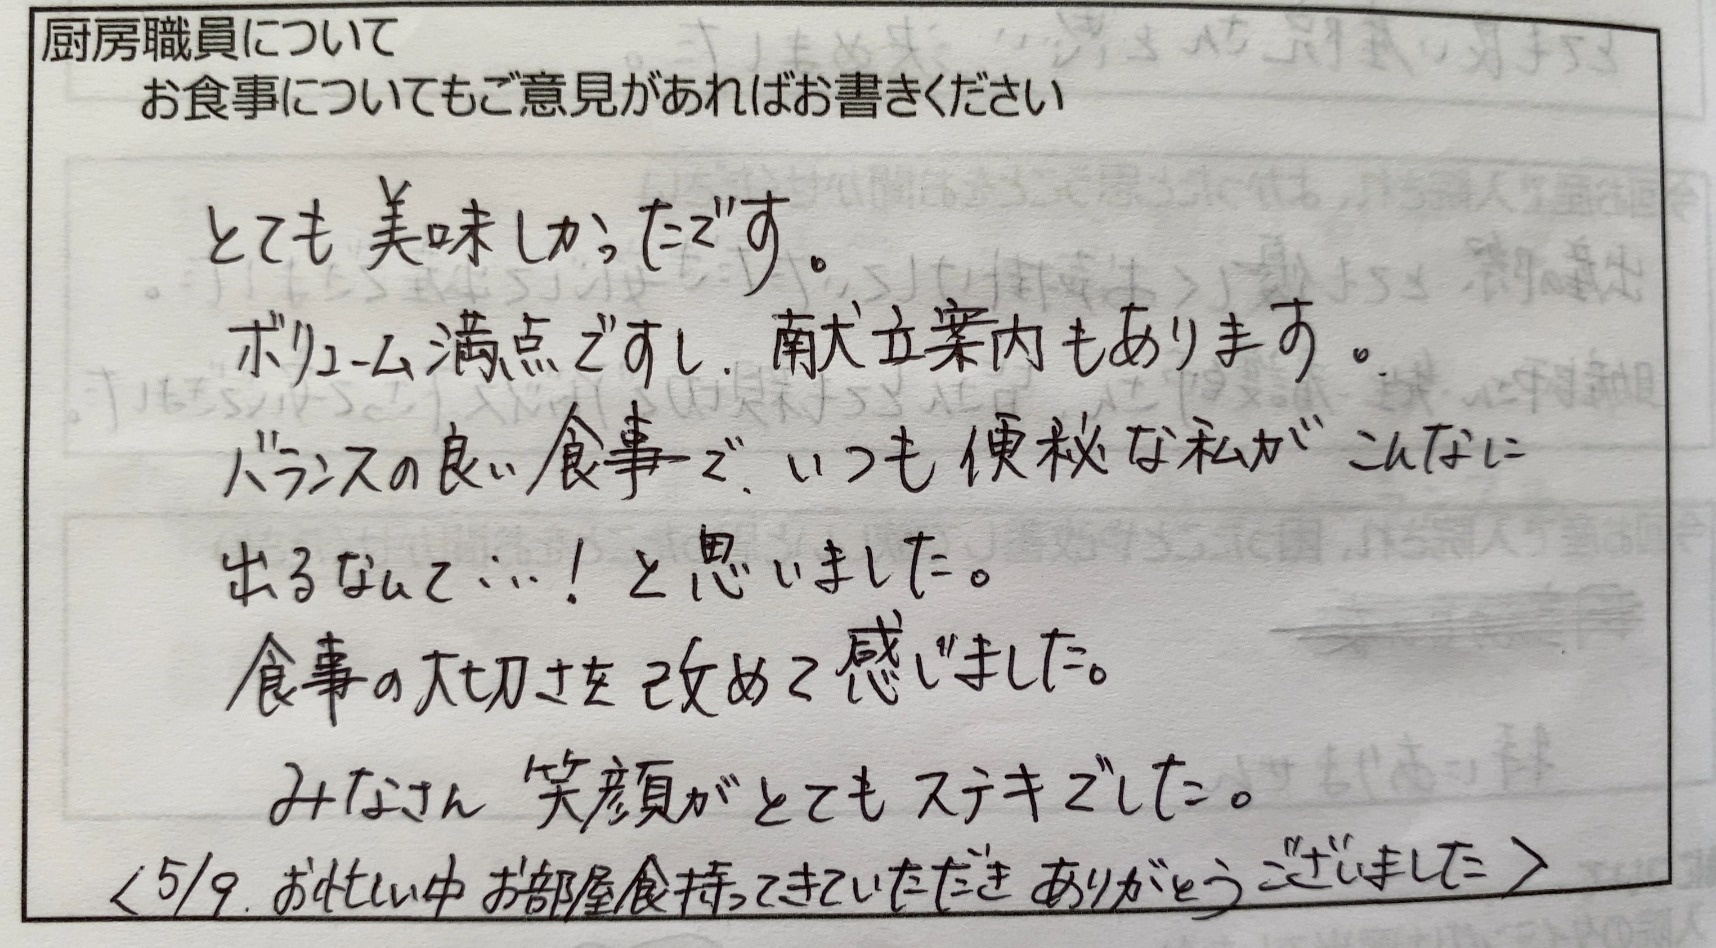 厨房職員について
お食事についてもご意見があればお書きください
とても美味しかったです。
ボリューム満点ですし、献立案内もあります。
バランスの良い食事で、いつも便秘な私がこんなに
出るなんて…！と思いました。
食事の大切さを改めて感じました。
みなさん笑顔がとてもステキでした。
<5/9. お忙しい中お部屋食持ってきていただきありがとうございました>